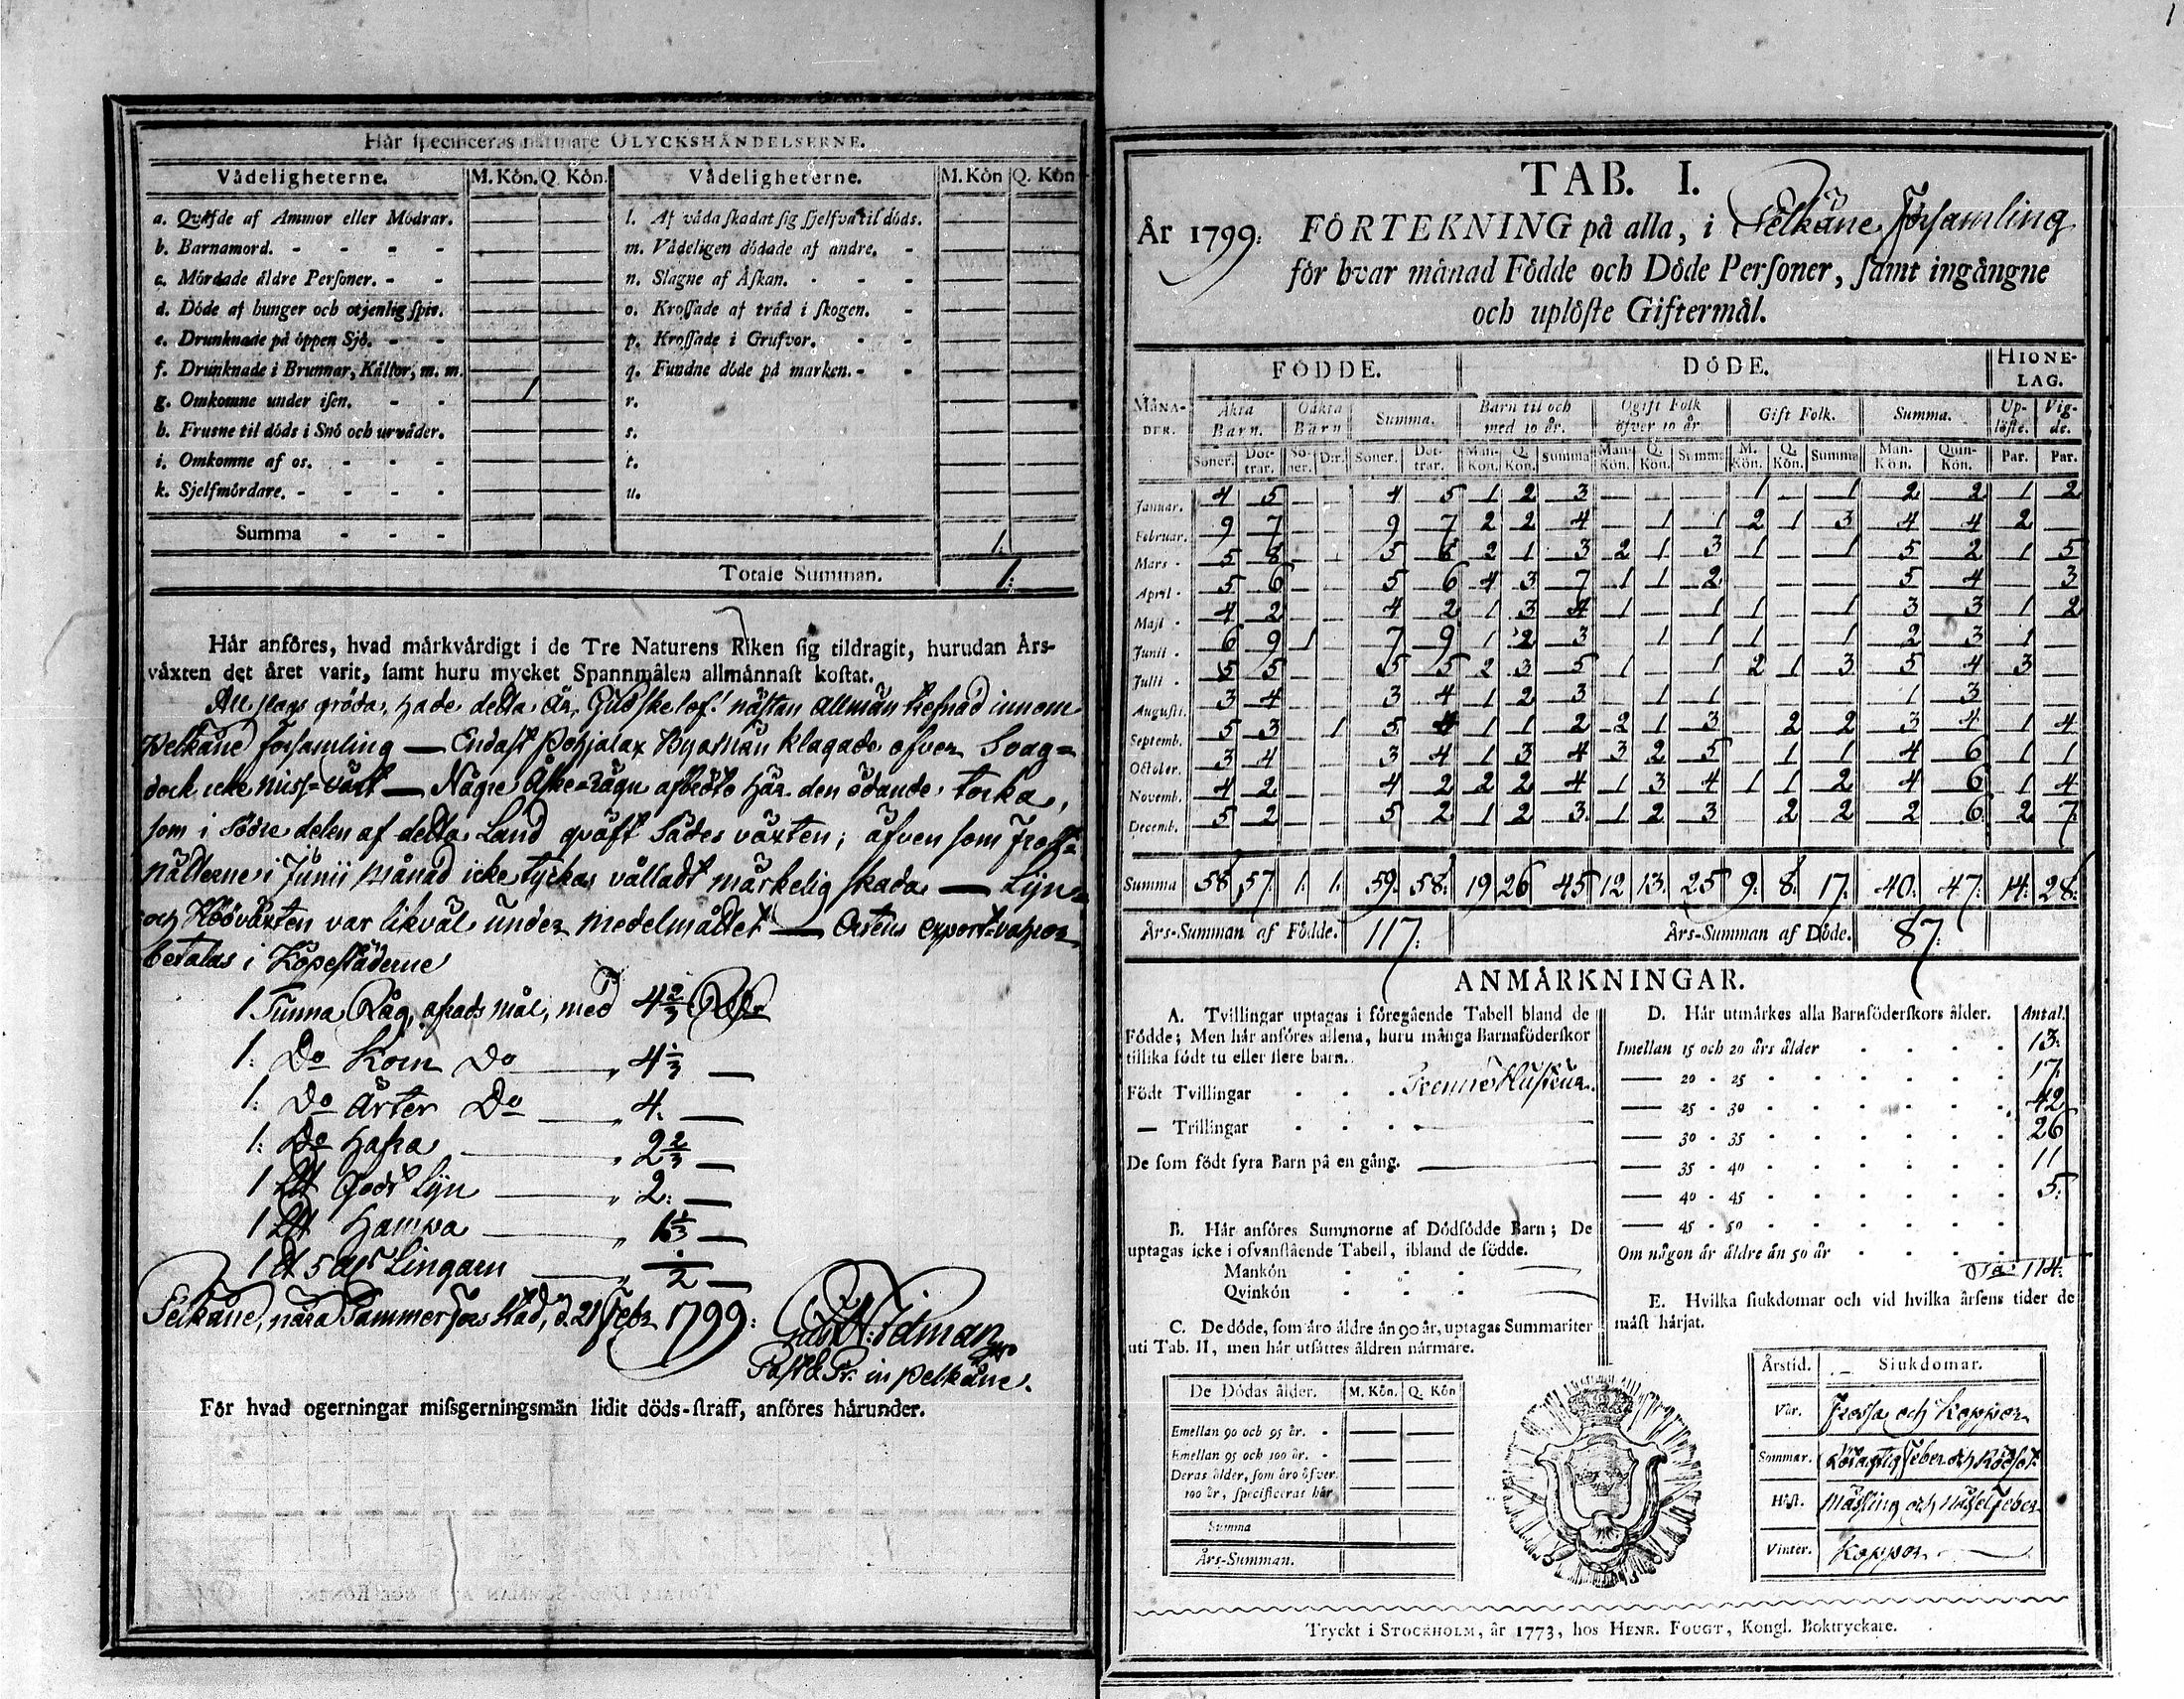 Här specificeras närmare OLYCKSHÄNDELSERNE.
Vådeligheterne. M. Kön. Q. Kön. Vådeligheterne. M. Kön Q. Kön
a. Qväfde af Ammor eller Mödrar. — — l. Af våda skadat sig sjelfva til döds. — —
b. Barnamord. - - - - — — m. Vådeligen dödade af andre. - — —
c. Mördade äldre Personer. - - — — n. Slagne af Åskan. - - - — —
d. Döde af hunger och otjenlig spis. — — o. Krossade af träd i skogen. - — —
e. Drunknade på öppen Sjö. - - — — p. Krossade i Grufvor. - - — —
f. Drunknade i Brunnar, Källor, m. m. — — q. Fundne döde på marken. - - — —
g. Omkomne under isen. - - 1 — r. — —
h. Frusne til döds i Snö och urväder. — — s. — —
i. Omkomne af os. - - - - — — t. — —
k. Sjelfmördare. - - - - — — u. — —
Summa - - - 1.
Totale Summan. 1:
Här anföres, hvad märkvärdigt i de Tre Naturens Riken sig tildragit, hurudan Års-
växten det året varit, samt huru mycket Spannmålen allmännast kostat.
All slags gröda, hade detta År, Gudskelof! nästan allmän trefnad innom
Pelkäne församling — Endast Pohjalax Byamän klagade öfver Svag=
dock icke miss=växt — Några Åske=rägn afbröto här den ödande torka,
som i södre delen af detta Land qväft Sädes växten; äfven som frost=
nätterne i Junii Månad icke tyckas vålladt märkelig skada — Lijn=
och Höväxten var likväl under medelmåttet — Ortens export=vahror
betalas i Köpestäderne
1 Tunna Råg, afrads mål, med 4 2/3 Rdr
1: Do Korn Do — " 4 1/3 —
1: Do Ärter Do — " 4. —
1: Do Hafra — " 2 2/3 —
1 L℔ Godt Lijn — " 2: —
1 L℔ Hampa — " 1 1/3 —
1 ℔ Lingarn — " 1/2 —
Pelkäne, nära Tammerfors stad, d. 21 Febr 1799:
Past & Pr. in Pelkäne.
För hvad ogerningar missgerningsmän lidit döds-straff, anföres härunder.
TAB. I.
År 1799: FÖRTEKNING på alla, i Pelkäne Församling
för hvar månad Födde och Döde Personer, samt ingångne
och uplöste Giftermål.
FÖDDE. DÖDE. HIONE-
LAG.
MÅNA-
DER. Äkta Barn. Oäkta Barn Summa. Barn til och med 10 år. Ogift Folk öfver 10 år Gift Folk. Summa. Up-löste. Vig-de.
Söner. Döt-trar. Sö-ner. Dir. Söner. Döt-trar. Man-Kön. Q. Kön. Summa Man-Kön. Q. Kön. Summa M. Kön. Q. Kön. Summa Man-Kön. Quin-Kön. Par. Par.
Januar. 4 5 — — 4 5 1 2 3 — — — 1 — 1 2 2 1 2
Februar. 9 7 — — 9 7 2 2 4 — 1 1 2 1 3 4 4 2 —
Mars - 5 8 — — 5 8 2 1 3 2 1 3 1 — 1 5 2 1 5
April - 5 6 — — 5 6 4 3 7 1 1 2 — — — 5 4 — 3
Maji - 4 2 — — 4 2 1 3 4 1 — 1 1 — 1 3 3 1 2
Junii - 6 9 1 — 7 9 1 2 3 — 1 1 1 — 1 2 3 1 —
Julii - 5 5 — — 5 5 2 3 5 1 — 1 2 1 3 5 4 3 —
Augusti. 3 4 — — 3 4 1 2 3 — 1 1 — — — 1 3 — —
Septemb. 5 3 — 1 5 4 1 1 2 2 1 3 — 2 2 3 4 1 4
October. 3 4 — — 3 4 1 3 4 3 2 5 — 1 1 4 6 1 1
Novemb. 4 2 — — 4 2 2 2 4 1 3 4 1 1 2 4 6 1 4
Decemb. 5 2 — — 5 2 1 2 3 1 2 3 — 2 2 2 6 2 7
Summa 58 57 1. 1. 59. 58. 19 26 45 12 13. 25 9. 8. 17. 40. 47. 14. 28.
Års-Summan af Födde. 117. Års-Summan af Döde. 87.
ANMÄRKNINGAR.
A. Tvillingar uptagas i föregående Tabell bland de
Födde; Men här anföres allena, huru många Barnaföderskor
tillika födt tu eller flere barn.
Födt Tvillingar - - - Trenne Hustrur.
— Trillingar - - - —
De som födt fyra Barn på en gång. —
B. Här anföres Summorne af Dödfödde Barn; De
uptagas icke i ofvanstående Tabell, ibland de födde.
Mankön - - - —
Qvinkön - - - —
C. De döde, som äro äldre än 90 år, uptagas Summariter
uti Tab. II, men här utsättes åldren närmare.
De Dödas ålder. M. Kön. Q. Kön
Emellan 90 och 95 år. - — —
Emellan 95 och 100 år. - — —
Deras ålder, som äro öfver
100 år, specificeras här — —
Summa
Års-Summan.
D. Här utmärkes alla Barnföderskors ålder. Antal.
Imellan 15 och 20 års ålder - - - 13.
— 20 - 25 - - - 17.
— 25 - 30 - - - 42
— 30 - 35 - - - 26
— 35 - 40 - - - 11
— 40 - 45 - - - 5.
— 45 - 50 - - -
Om någon är äldre än 50 år - - -
114.
E. Hvilka siukdomar och vid hvilka årsens tider de
mäst härjat.
Årstid. Siukdomar.
Vår. Frossa och Koppor
Sommar. Rötagtig feber och Rödsot
Höst. Mässling och Nässelfeber
Vinter. Koppor —
Tryckt i STOCKHOLM, år 1773, hos HENR. FOUGT, Kongl. Boktryckare.